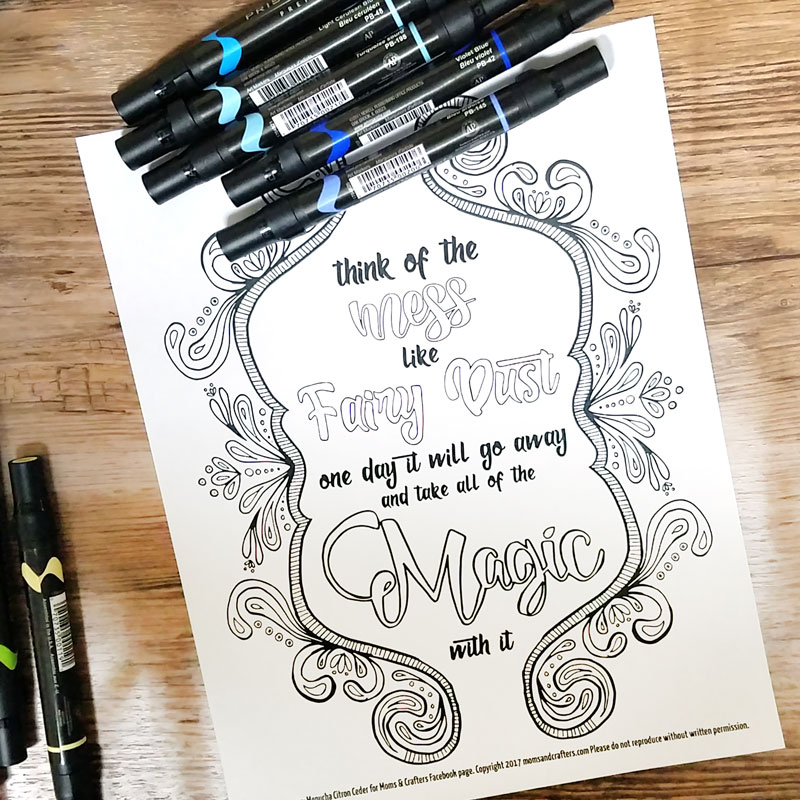 PRISM
PREM
Light Cerulean Blue
Bleu céruléen
PB-48
AP
PB-198
AP
Violet Blue
Bleu violet
PB-42
AP
PB-145
AP
think of the
mess
like
Fairy Dust
one day it will go away
and take all of the
Magic
with it
Menucha Citron Ceder for Moms & Crafters Facebook page. Copyright 2017 momsandcrafters.com Please do not reproduce without written permission.